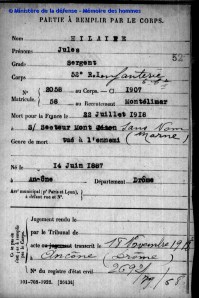 © Ministère de la défense - Mémoire des hommes
PARTIE À REMPLIR PAR LE CORPS.
Nom HILAIRE
Prénoms Jules
Grade Sergent
Corps 52° R. Infanterie
N° 2058 au Corps. — Cl. 1907
Matricule. 56 au Recrutement Montélimar
Mort pour la France le 22 Juillet 1918
à Secteur Mont Sans Nom
(Marne)
Genre de mort tué à l'ennemi
Né le 14 Juin 1887
à Ancône Département Drôme
Arr' municipal (p' Paris et Lyon),
à défaut rue et N°.
Jugement rendu le
par le Tribunal de
acte ou jugement transcrit le 18 Novembre
à Ancône (Drôme)
N° du registre d'état civil
101-708-1922. [26434]